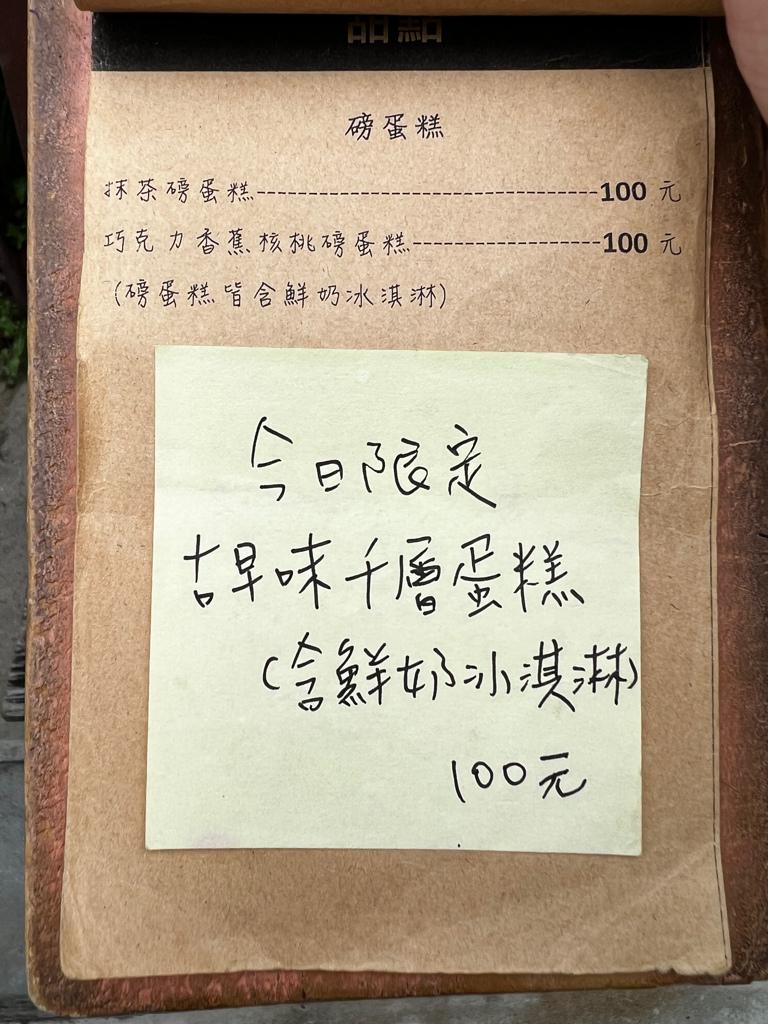 甜點
磅蛋糕
抹茶磅蛋糕---------------------------100 元
巧克力香蕉核桃磅蛋糕---------------100 元
(磅蛋糕皆含鮮奶冰淇淋)
今日限定
古早味千層蛋糕
(含鮮奶冰淇淋)
100元